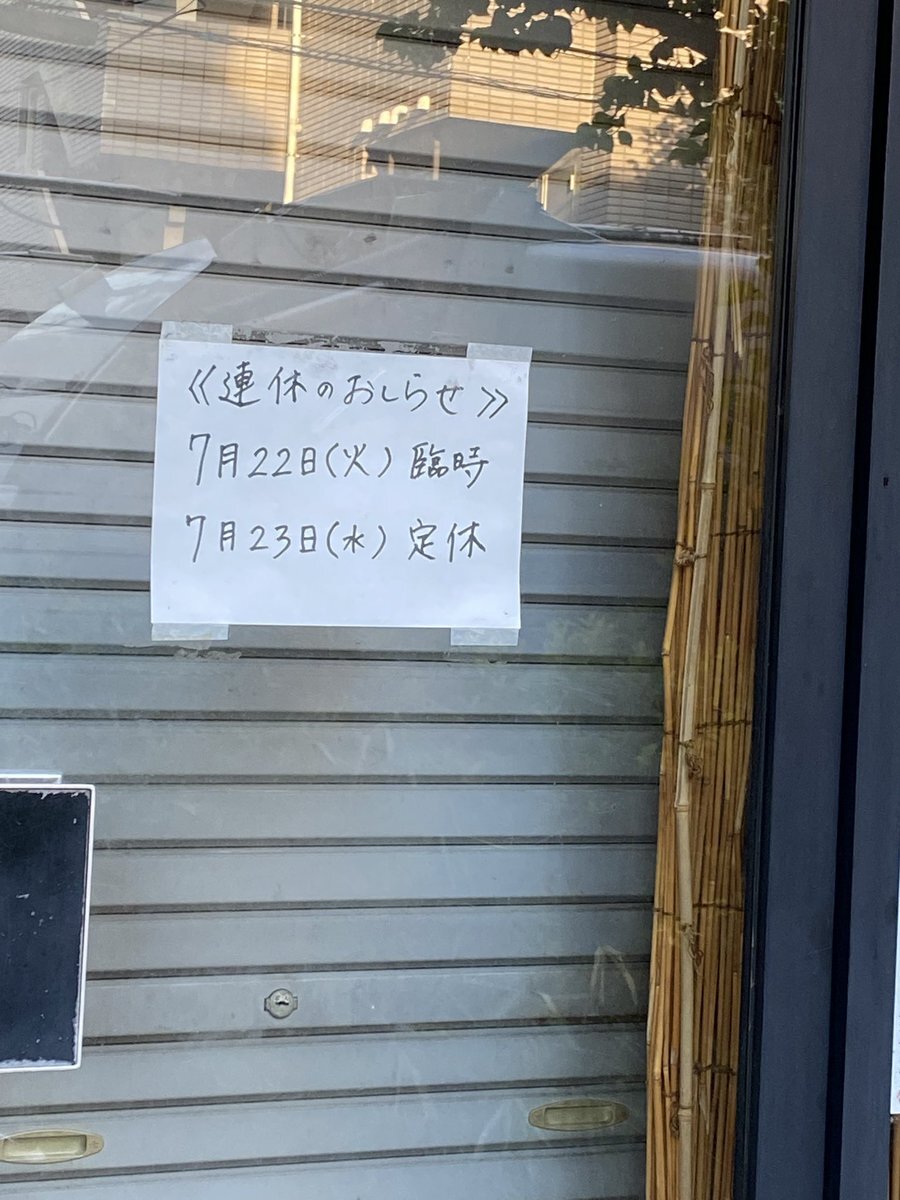 《連休のおしらせ》
7月22日(火) 臨時
7月23日(水) 定休